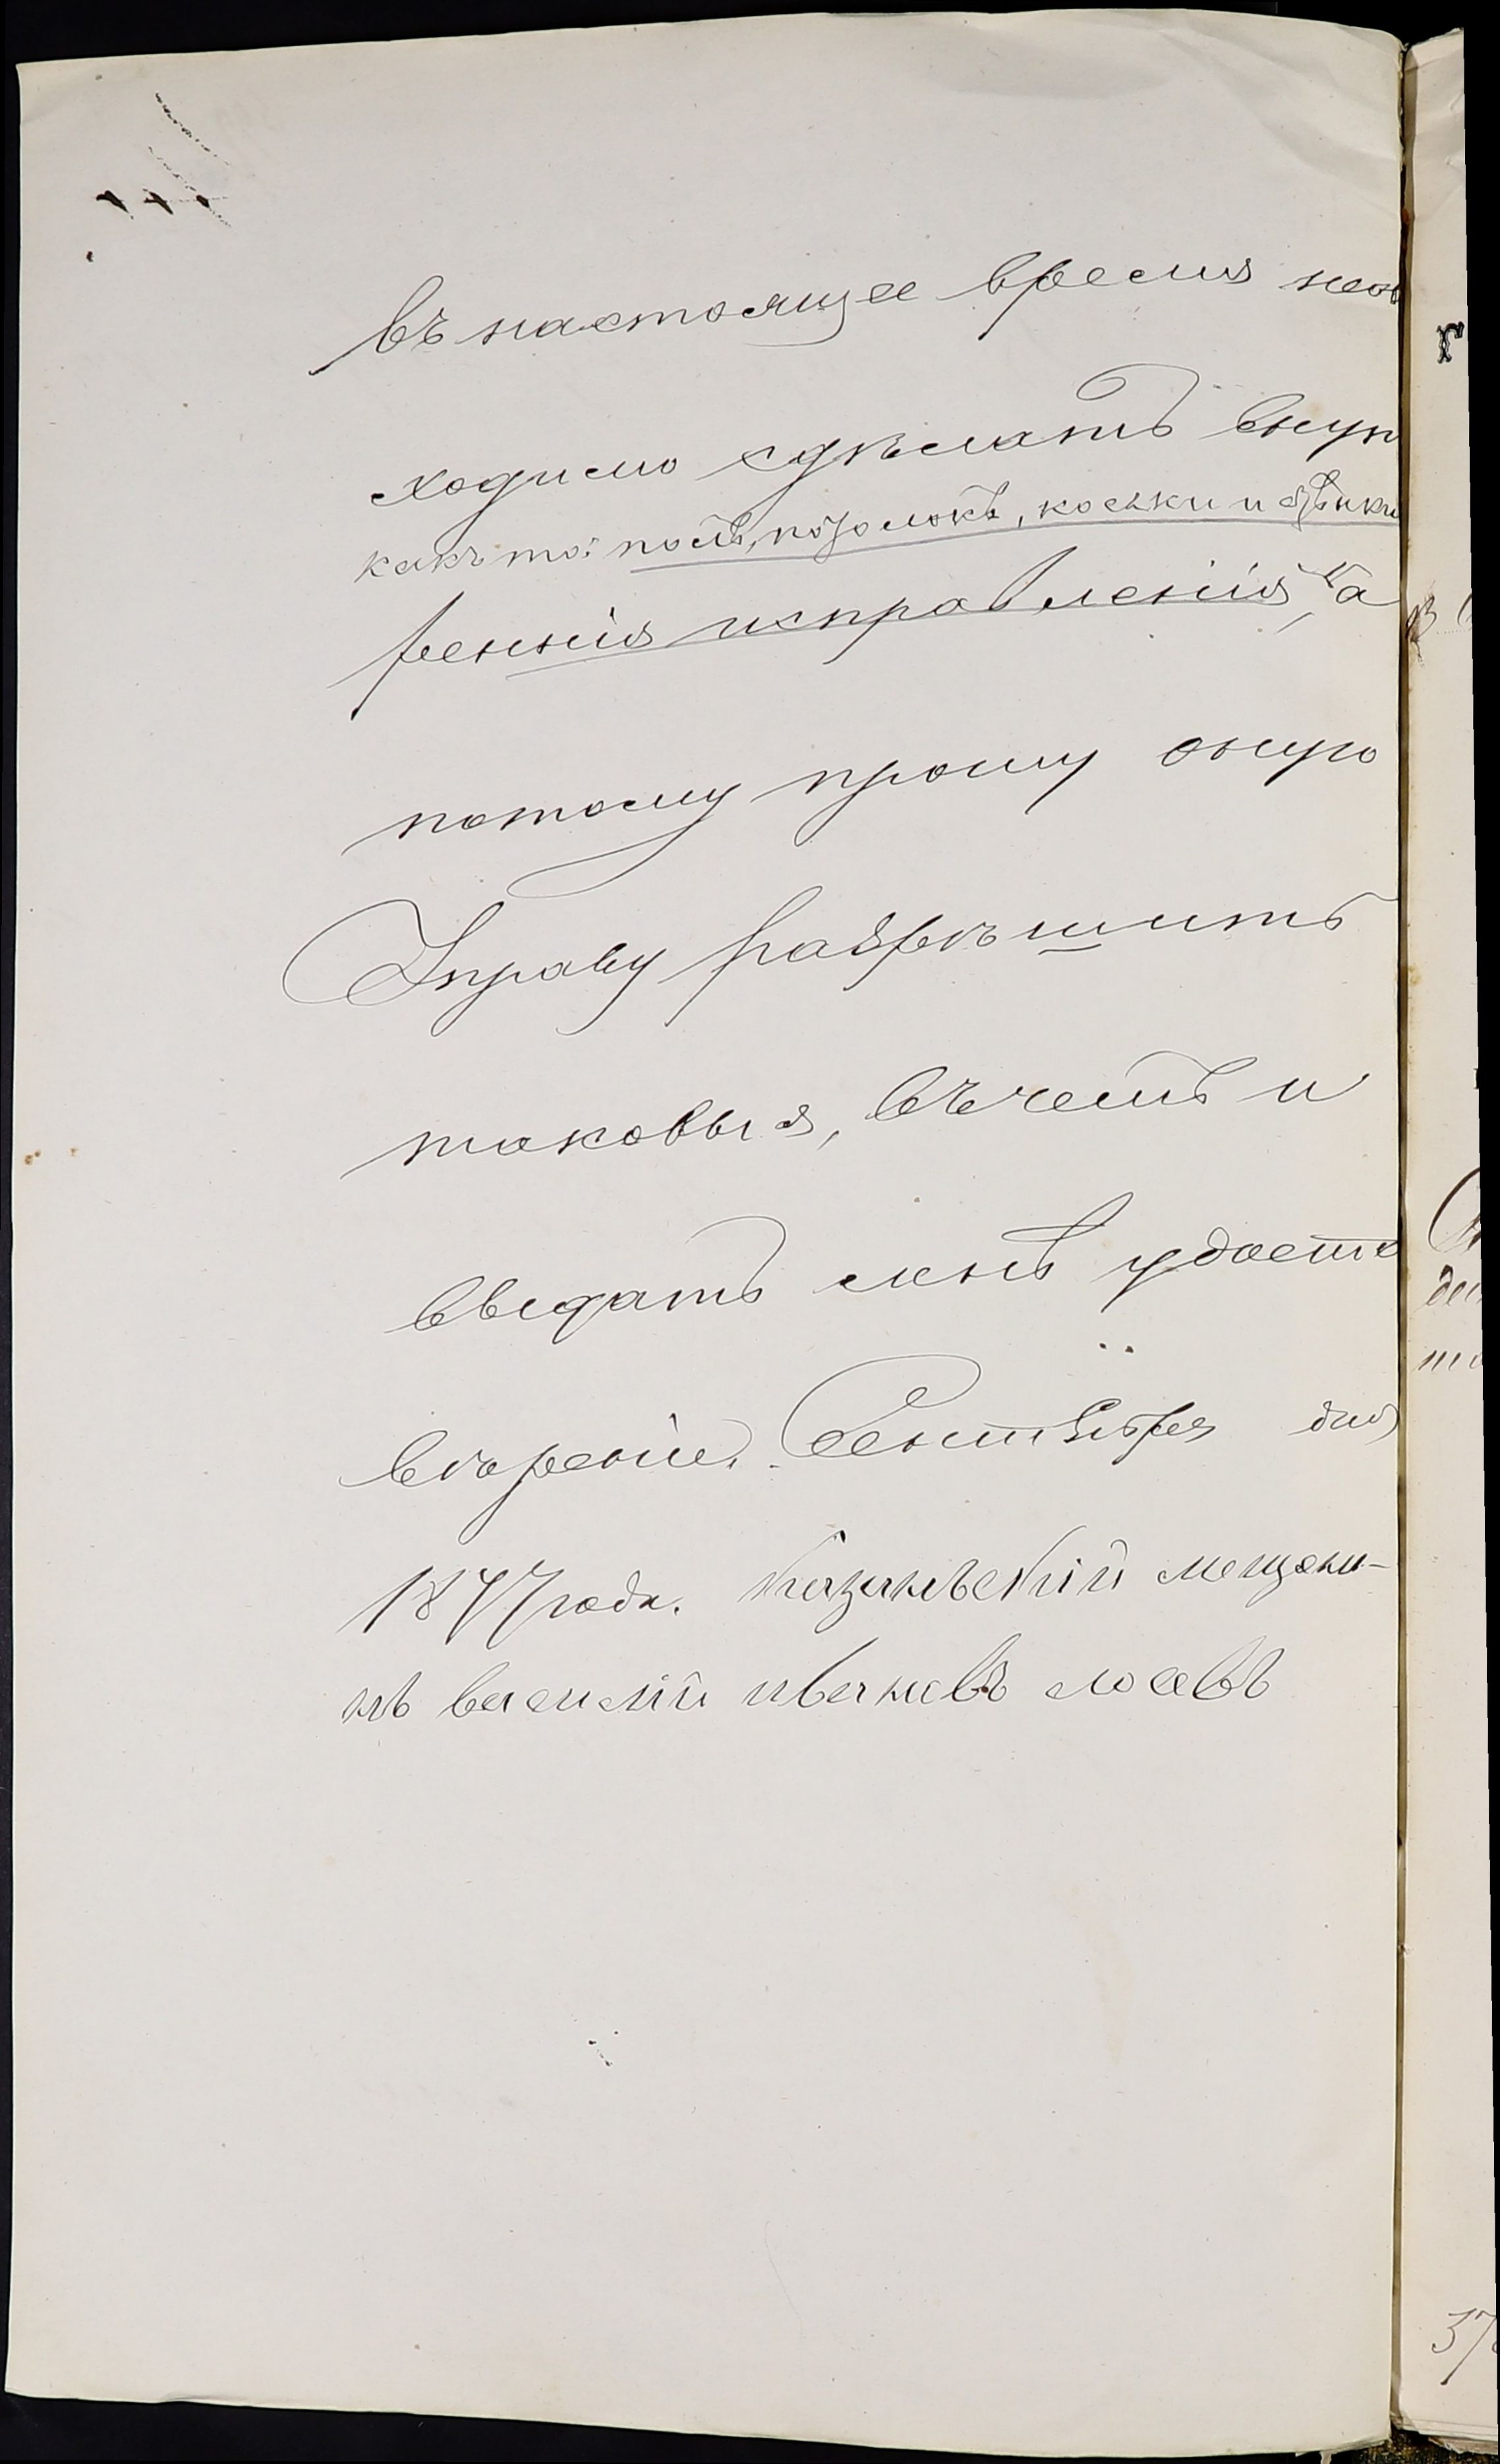 въ настоящее время необ
ходимо сдѣлать внут
какъ то: полъ, потолокъ, косяки и
реннія исправленія, а
потому прошу оную
Управу разрѣшить
таковыя, въ чемъ и
выдать мнѣ удосто
вѣреніе. Сентября дня
1877 года. Казаньскій мещани-
нъ василій ивановъ лосевъ